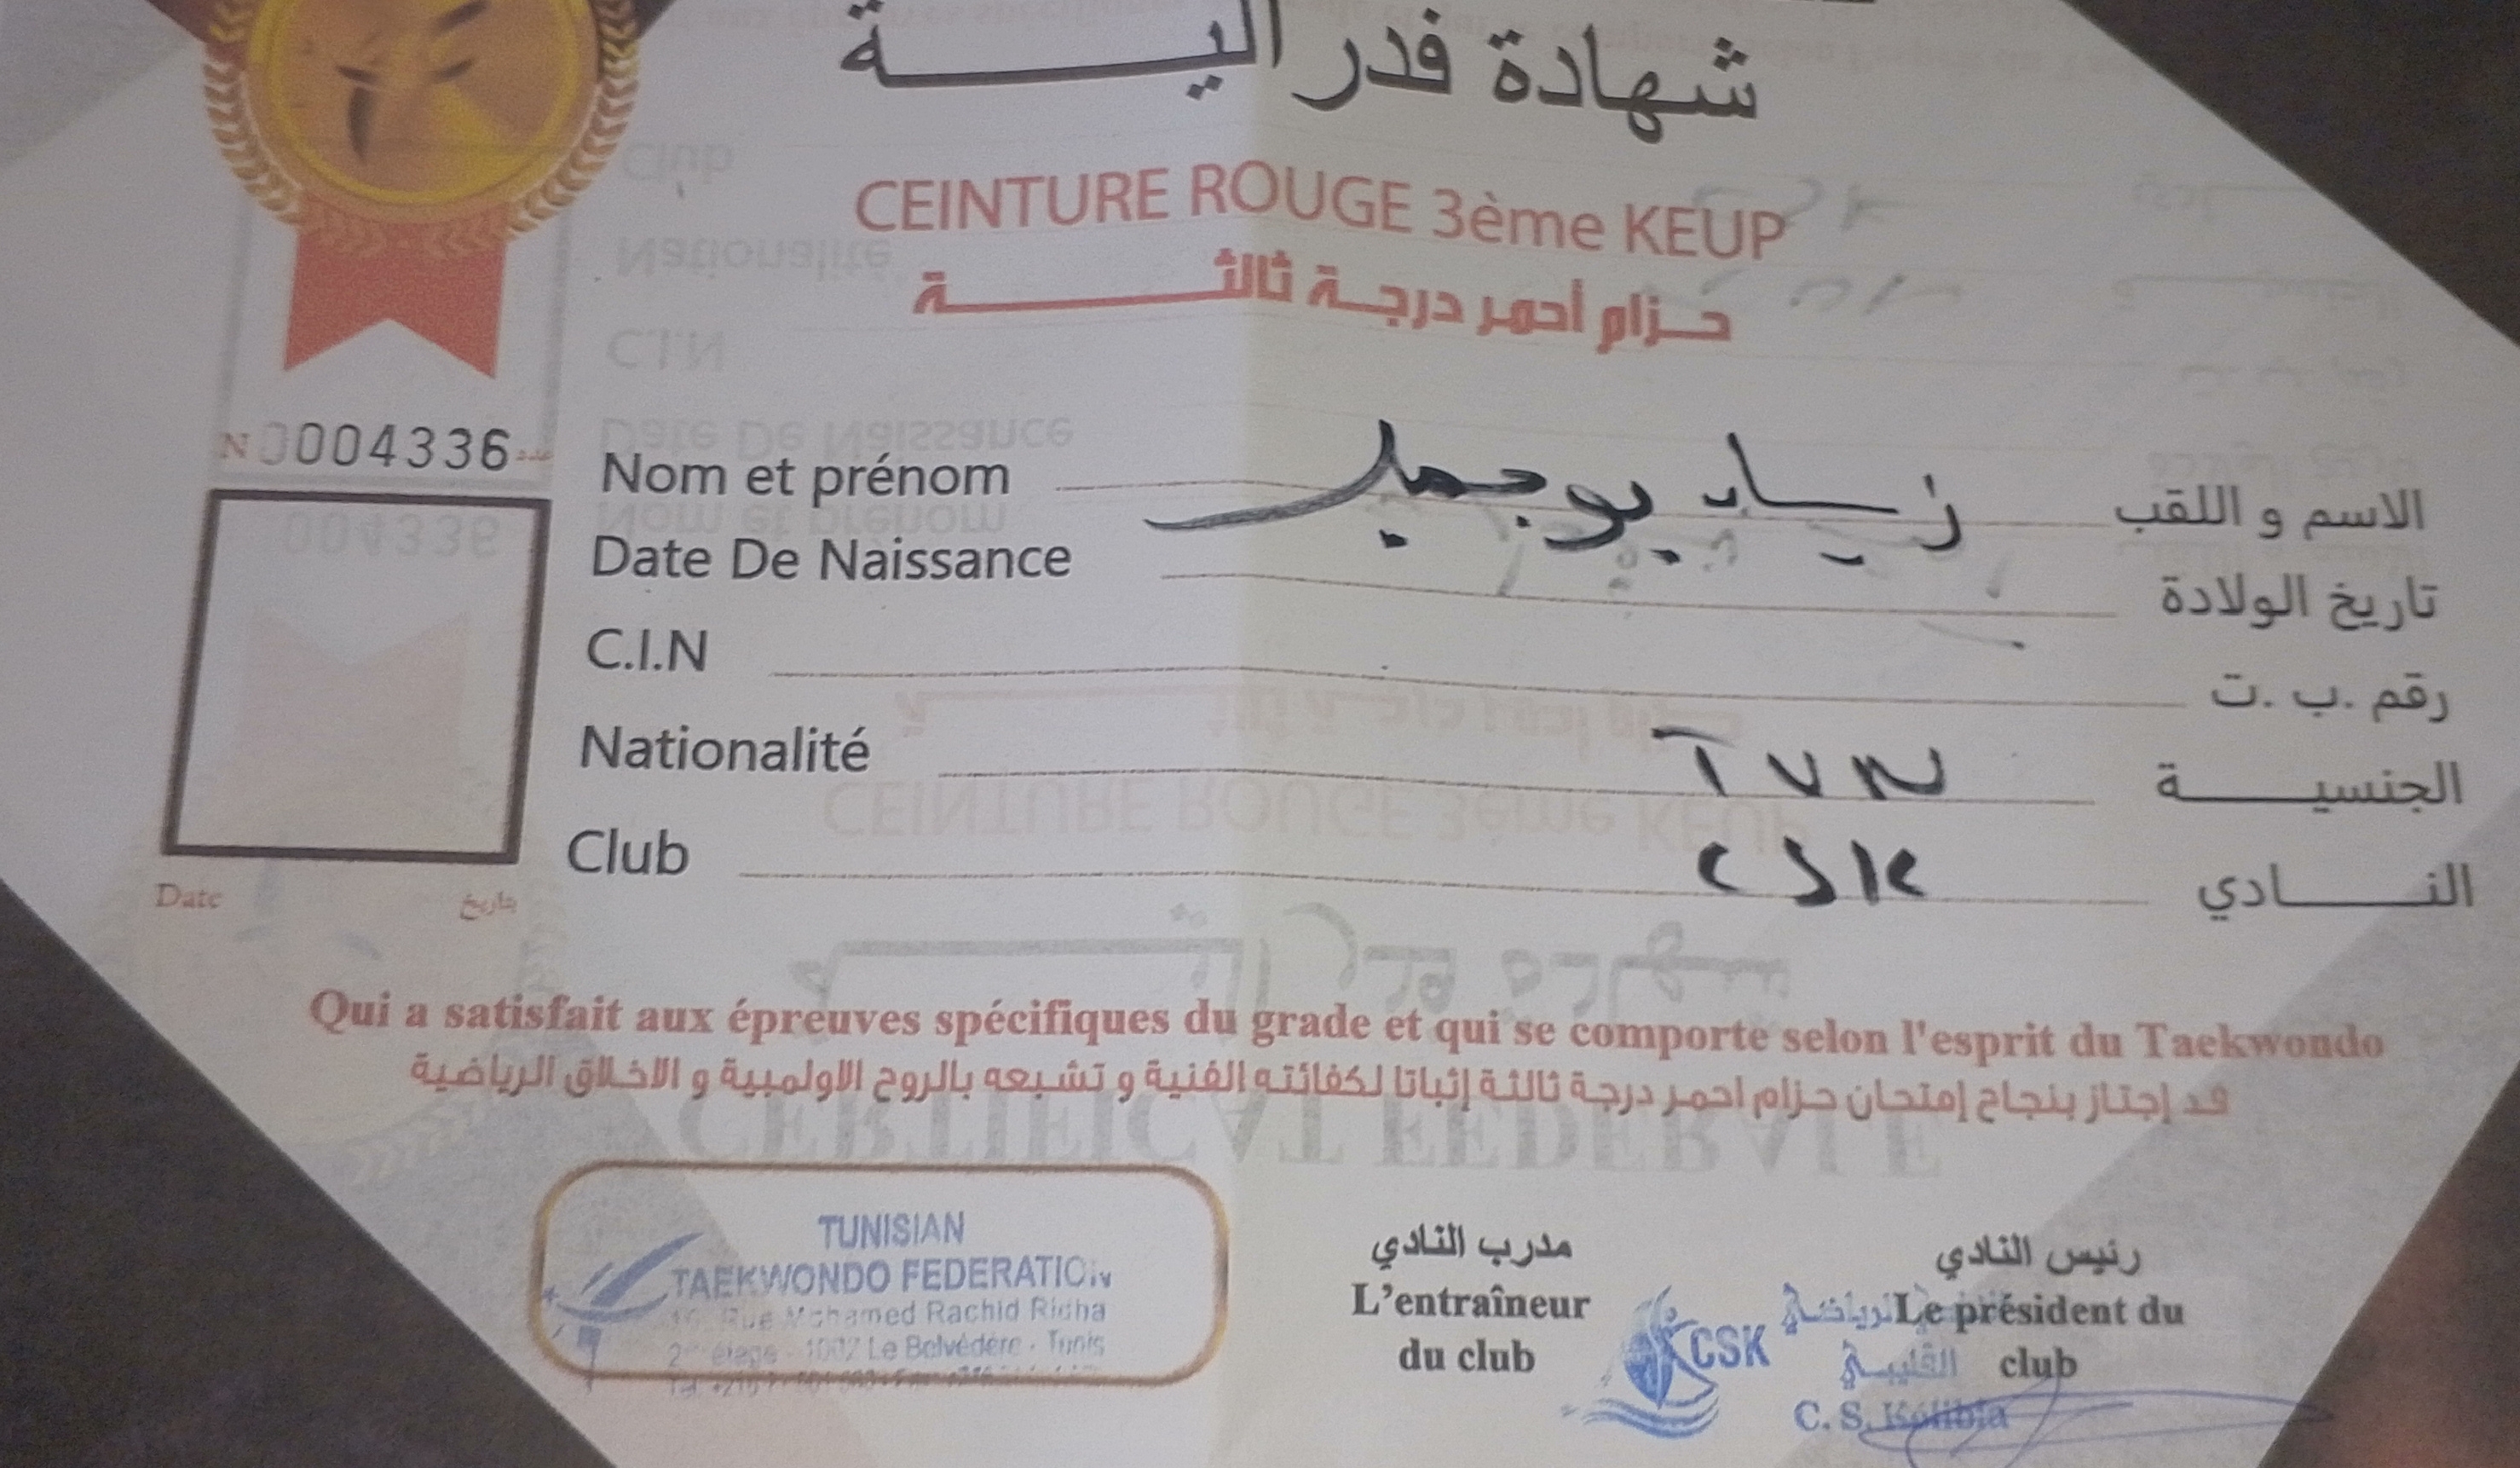 شهادة فدراليـــــة
CEINTURE ROUGE 3ème KEUP
حـزام أحمر درجـة ثالثـــــة
N 0004336 عدد
Nom et prénom زياد بوجميل الاسم و اللقب
Date De Naissance تاريخ الولادة
C.I.N رقم .ب .ت
Nationalité TUN الجنسيـــــة
Club CSK النـــــادي
Date تاريخ
Qui a satisfait aux épreuves spécifiques du grade et qui se comporte selon l'esprit du Taekwondo
قد إجتاز بنجاح إمتحان حزام احمر درجة ثالثة إثباتا لكفائته الفنية و تشبعه بالروح الاولمبية و الاخلاق الرياضية
TUNISIAN
TAEKWONDO FEDERATION
Rue Mohamed Rachid Ridha
2 étage - 1002 Le Belvédère - Tunis
مدرب النادي
L'entraîneur
du club
رئيس النادي
Le président du
club
CSK
الرياضي
القليبي
C. S. Kélibia